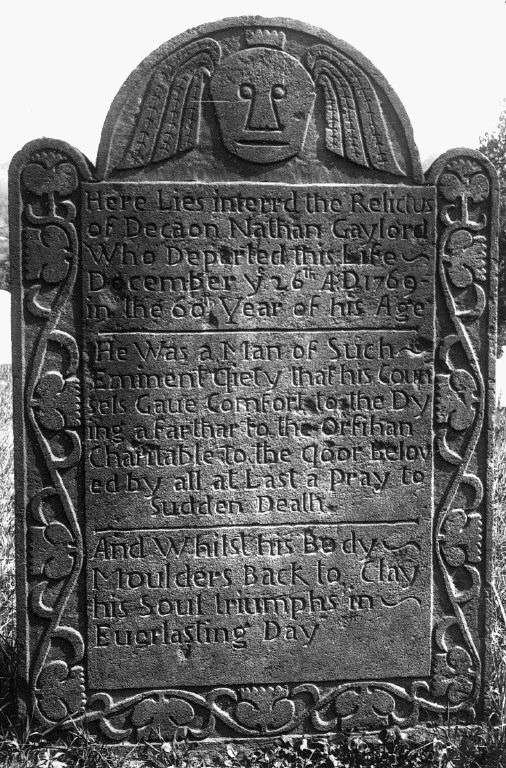 Here Lies interrd the Relictus
of Decaon Nathan Gaylord
Who Departed this Life
December yͤ 26ᵗʰ AD 1769
in the 60ᵗʰ Year of his Age
He Was a Man of Such
Eminent Piety that his Coun
sels Gaue Comfort to the Dy
ing a farthar to the Orfthan
Charitable to the Poor belov
ed by all at Last a Pray to
Sudden Death
And Whilst his Body
Moulders Back to Clay
his Soul triumphs in
Euerlasting Day